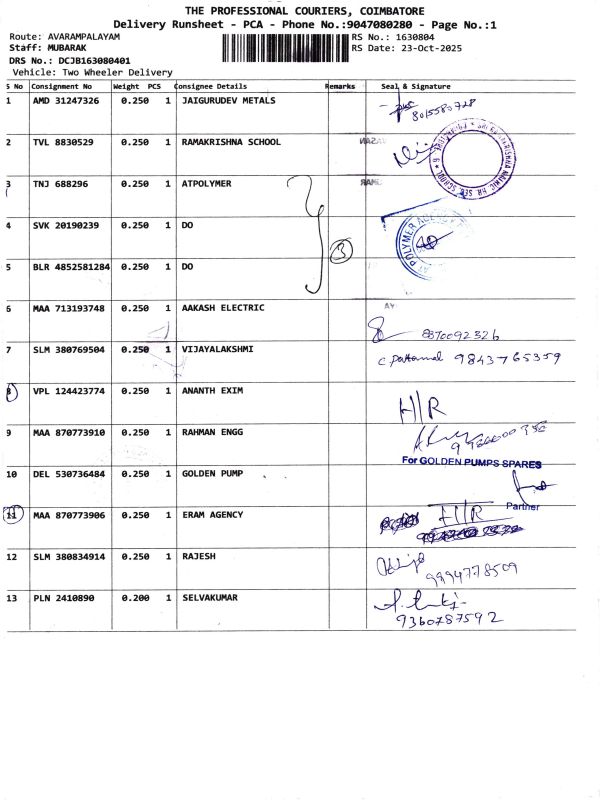 THE PROFESSIONAL COURIERS, COIMBATORE
Delivery Runsheet - PCA - Phone No.:9047080280 - Page No.:1
Route: AVARAMPALAYAM RS No.: 1630804
Staff: MUBARAK RS Date: 23-Oct-2025
DRS No.: DCJB163080401
Vehicle: Two Wheeler Delivery
S No Consignment No Weight PCS Consignee Details Remarks Seal & Signature
1 AMD 31247326 0.250 1 JAIGURUDEV METALS 8015580728
2 TVL 8830529 0.250 1 RAMAKRISHNA SCHOOL
3 TNJ 688296 0.250 1 ATPOLYMER
4 SVK 20190239 0.250 1 DO
3
5 BLR 4852581284 0.250 1 DO
6 MAA 713193748 0.250 1 AAKASH ELECTRIC
8870092326
7 SLM 380769504 0.250 1 VIJAYALAKSHMI 9843765359
8 VPL 124423774 0.250 1 ANANTH EXIM H/R
9 MAA 870773910 0.250 1 RAHMAN ENGG
For GOLDEN PUMPS SPARES
10 DEL 530736484 0.250 1 GOLDEN PUMP
Partner
11 MAA 870773906 0.250 1 ERAM AGENCY H/R
12 SLM 380834914 0.250 1 RAJESH
9994778509
13 PLN 2410890 0.200 1 SELVAKUMAR
9360787592